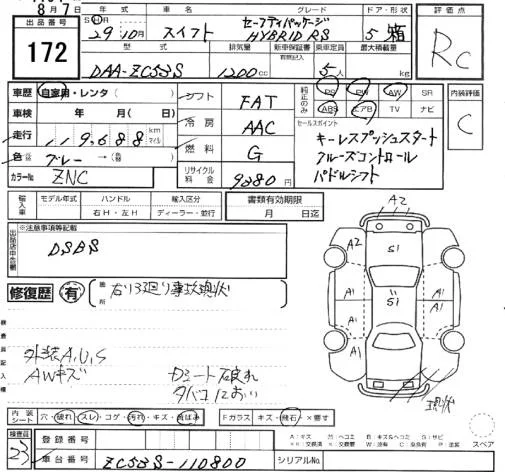 8月7日
年式 グレード ドア・形状 評価点
出品番号 172
29年10月 スイフト セーフティパッケージ HYBRID RS 5 箱 RC
型式 排気量 新車保証書 乗車定員 最大積載量
DAA-ZC53S 1200cc 5人 kg
車歴 自家用・レンタ( )
シフト FAT
純正のみ PS PW AW SR
ABS エアB TV ナビ
内装評価 C
車検 年 月( 日)
冷房 AAC
セールスポイント
走行 119,688 km マイル
キーレスプッシュスタート
クルーズコントロール
パドルシフト
色 グレー→
燃料 G
カラーNo ZNC
リサイクル料金 9380円
輸入車 モデル年式 ハンドル 輸入区分
右H・左H ディーラー・並行
書類有効期限
月 日迄
※注意事項等記載
DSBS
修復歴 有 箇所 右リヌ廻り事故現状
外装A,U,S
AWキズ
タバコにおい
A2
A2 S1
A1 S1 A1
A1 A1
A1
現状
内装 シート 穴・破れ・スレ・コゲ・汚れ・キズ・黄ばみ Fガラス キズ・飛石・×要す
A:キズ U:ヘコミ B:キズ&ヘコミ S:サビ
スペア
検査員 23
登録番号
車台番号 ZC53S-110800 シリアルNo